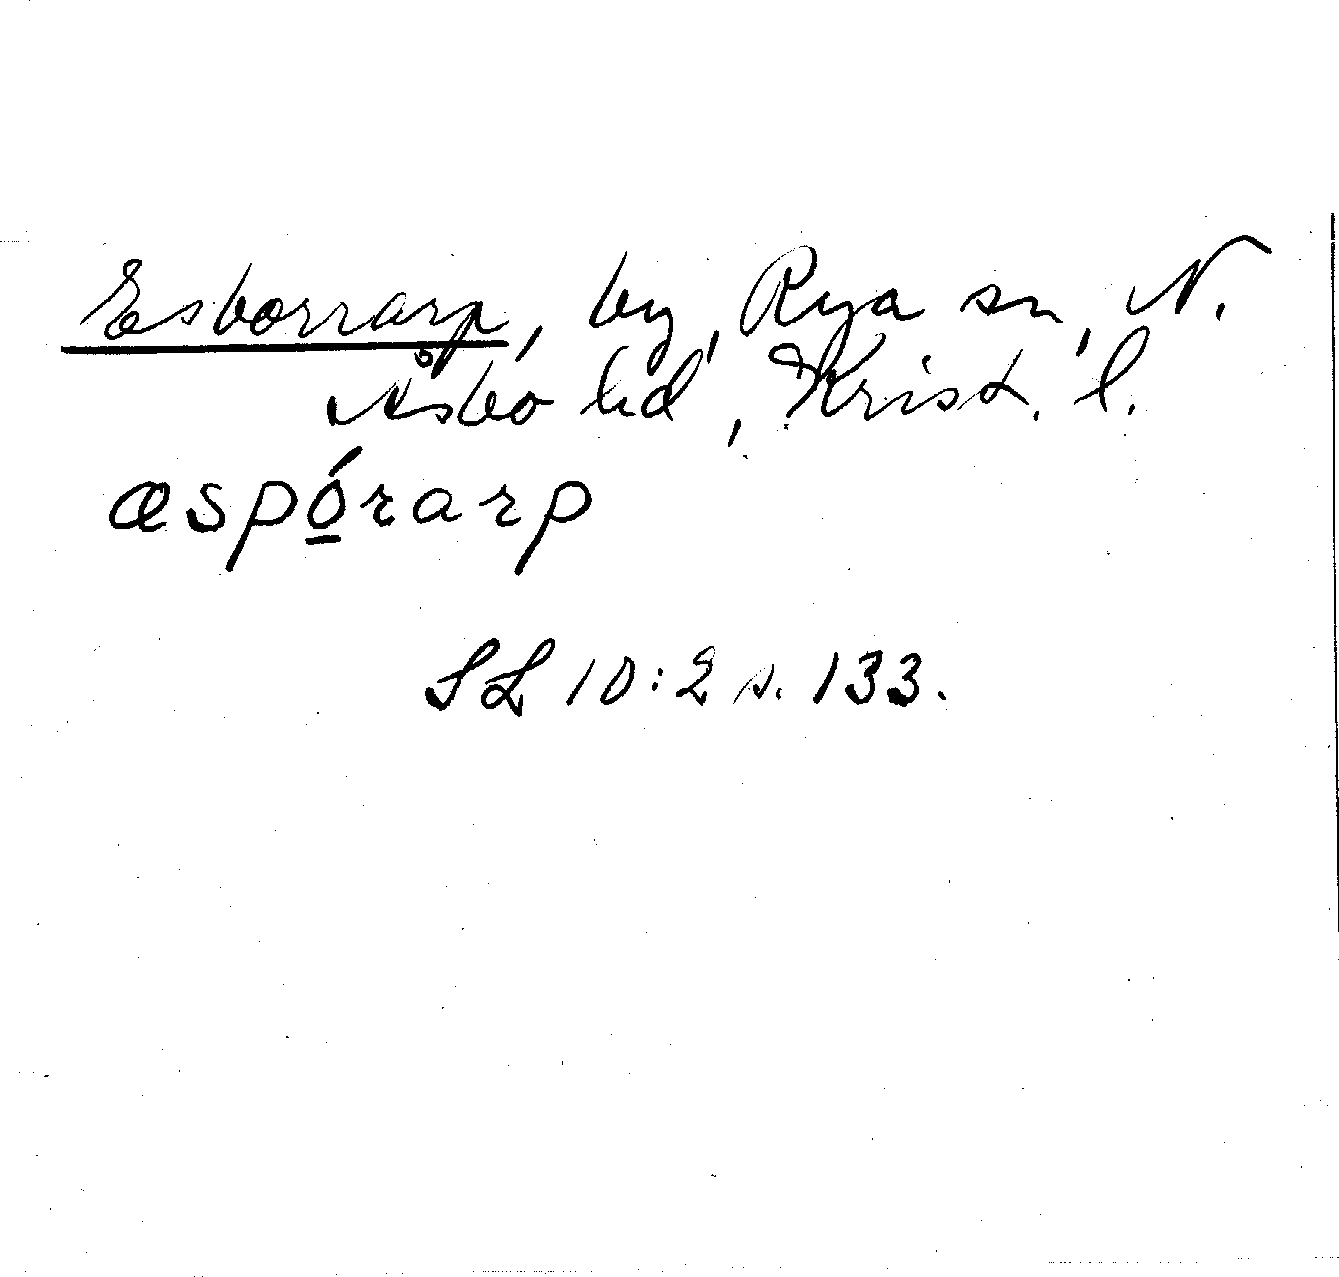 Esborrarp, by, Rya sn, N.
Åsbo hd, Krist. l.
æspó̱rarp
SL 10:2 s. 133.